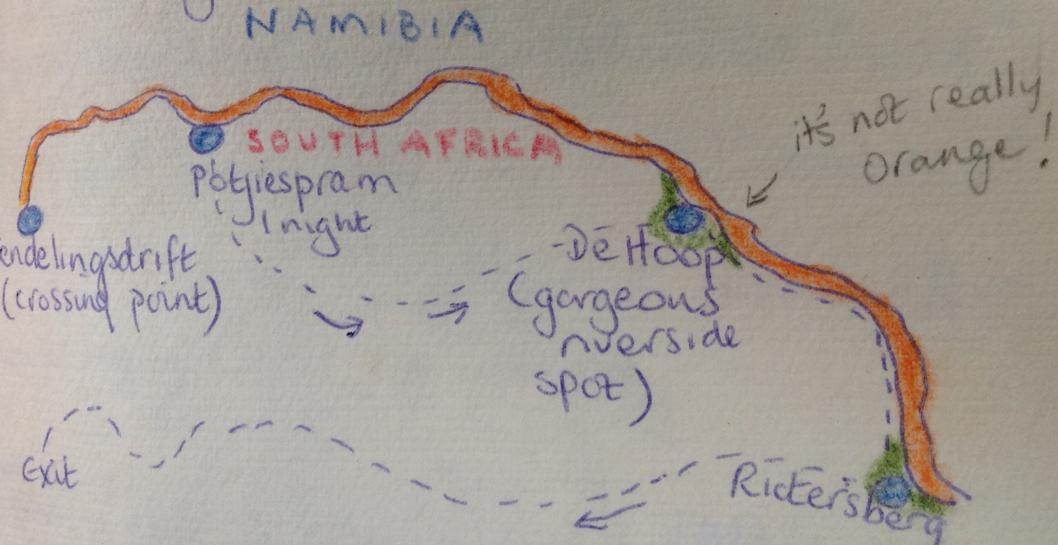 NAMIBIA
it's not really
Orange!
SOUTH AFRICA
Potjiespram
1 night
endelingsdrift
(crossing point)
De Hoop
(gorgeous
riverside
spot)
Exit
Rictersberg